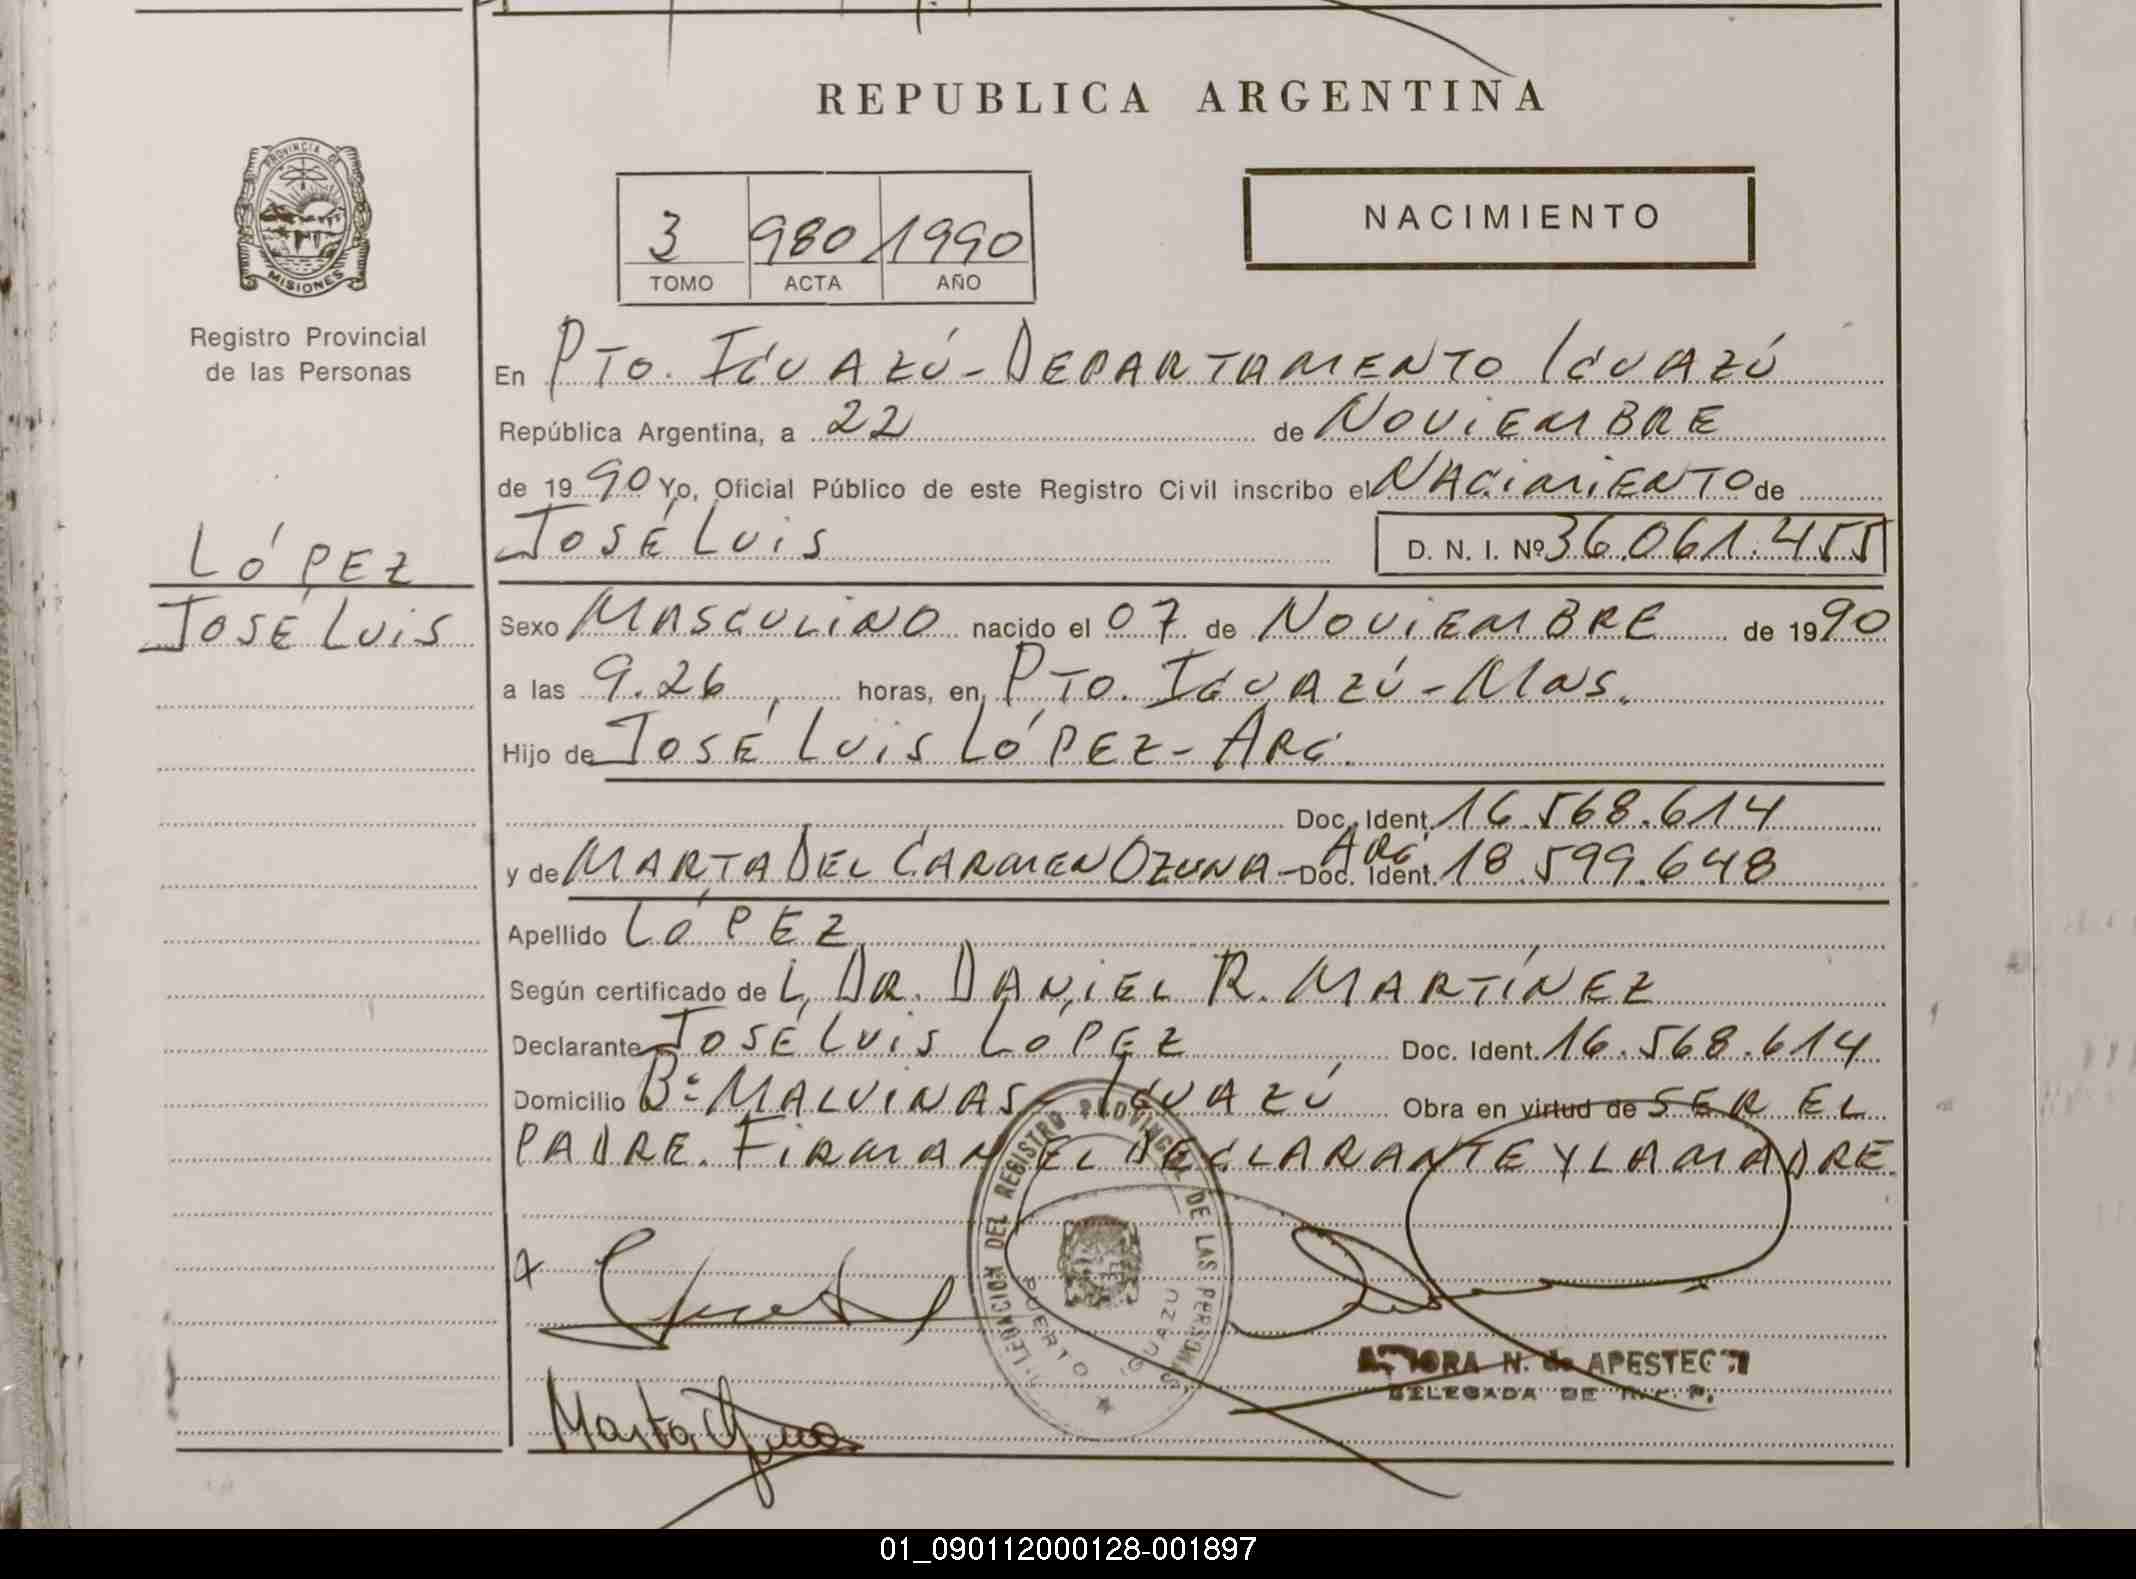 REPUBLICA ARGENTINA
PROVINCIA DE
MISIONES
Registro Provincial
de las Personas
3 980 1990
TOMO ACTA AÑO
NACIMIENTO
En PTO. IGUAZÚ - DEPARTAMENTO IGUAZÚ
República Argentina, a 22 de NOVIEMBRE
de 1990 Yo, Oficial Público de este Registro Civil inscribo el NACIMIENTO de
JOSÉ LUIS D. N. I. Nº 36.061.455
LÓPEZ
JOSÉ LUIS
Sexo MASCULINO nacido el 07 de NOVIEMBRE de 1990
a las 9.26 horas, en PTO. IGUAZÚ - MNS.
Hijo de JOSÉ LUIS LÓPEZ - ARG.
Doc. Ident. 16.568.614
y de MARTA DEL CARMEN OZUNA - ARG. Doc. Ident. 18.599.648
Apellido LÓPEZ
Según certificado de L, DR. DANIEL R. MARTÍNEZ
Declarante JOSÉ LUIS LÓPEZ Doc. Ident. 16.568.614
Domicilio Bº MALVINAS - IGUAZÚ Obra en virtud de SER EL
PADRE. FIRMAN EL DECLARANTE Y LA MADRE.
DELEGACION DEL REGISTRO PROVINCIAL DE LAS PERSONAS
PUERTO IGUAZU
N. de APESTEG
DELEGADA DE R. P.
Marta
01_090112000128-001897